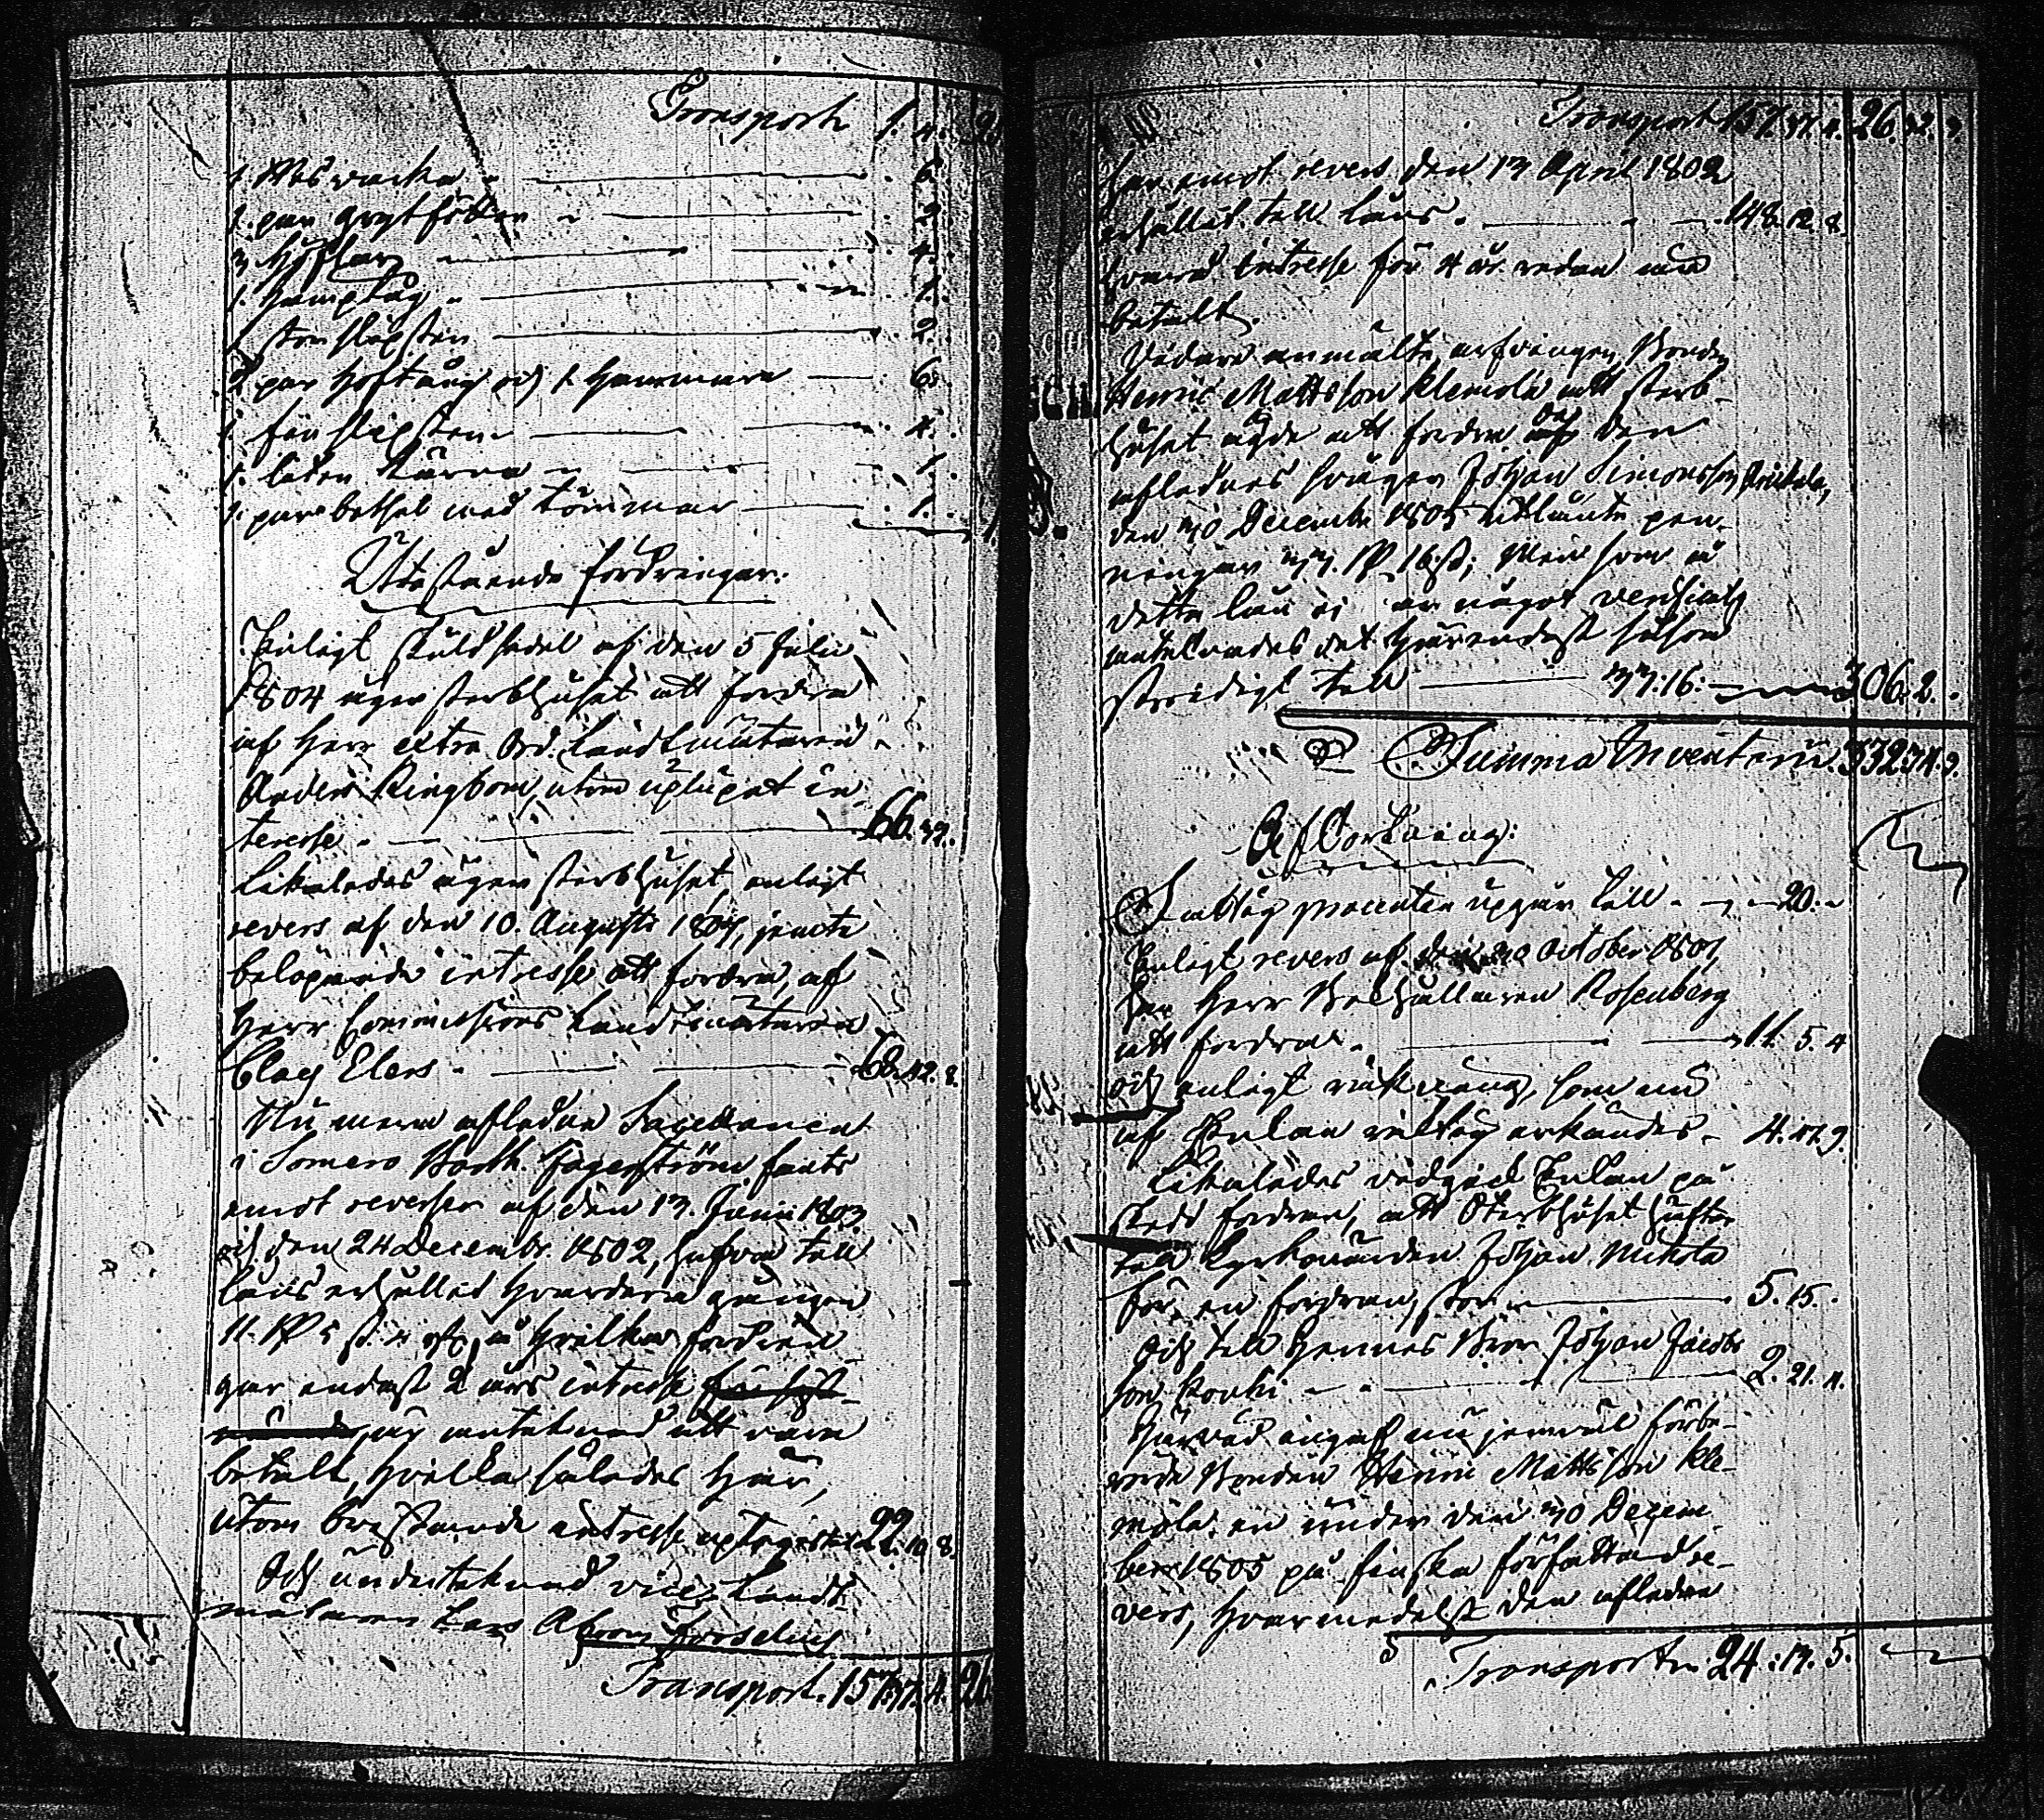 Transport 1. 4.
1 par grytfötter 2
3 Höflar 4.
1. Hamptåg 1.
1 stor slipsten 2.
2 par Hoftång och 1 Hammare 6.
1. fin slipsten 4.
1. liten kärra 1.
1. par betsel med tömmar 1.
Utestående fordringar.
Enligt skuldsedel af den 5 Julii
1804 äger sterbhuset att fordra
af Herr extra Ord. Landtmätaren
Anders Ringbom, utom uplupit in
teresse 66. 32.
Likaledes äger sterbhuset enligt
revers af den 10. Augusti 1804, jemte
belöpande intresse att fordra, af
Herr Commissions Landtmätaren
Clas Elers 68. 42. 8.
Nu mera afledne Sacellanen
i Somero Barth. Fagerström
emot reverser af den 13. Junii 1803
och den 24 Decembr. 1802, hafva till
låns erhållit hvardera gången
11. Rd 5 s. 4 rst, å hvilka fordrin
gar endast 2 års intresse
är anteknad att vara
betalt, hvilka således här,
utom bristande intresse uptages till 22. 10. 8.
Och undertecknad vice Landt
mätaren Lars Abrom Forselius
Transport. 157. 37. 4. 26
Transport 157. 37. 4. 26. 32. 9
har emot revers den 13 April 1802
erhållit till låns 148. 12. 8.
hvarå intresse för 4 år redan är
betalt.
Vidare anmälte arfvingen, Bonden
Henric Mattsson Klemola att sterb-
huset ägde att fordra af den
aflednes svåger Johan Simonsson
den 30 Decembr 1805 utlånte pen-
ningar 33. Rd 16 s; Men som å
detta lån ej är något
antecknades det härendast såsom
stridigt till 33: 16: 306. 2.
Summa Inventarii. 332. 34. 9.
Afkortning:
Fattig procenten upgår till 20.
Enligt revers af den 20 October 1801,
har Herr Bokhållaren Rosenberg
att fordra 11. 5. 4
och enligt räkning, som nu
af Enkan riktig erkändes 4. 17. 9.
Likaledes vidgick Enkan på
stedd fordran, att Sterbhuset häftar
till Kyrkovärden Johan
för en fordran, stor 5. 15.
Och till hennes Bror Johan Jacobs
son 2. 21. 4.
Härvid ingaf nu jemväl förbe-
rörde Bonden Henric Mattsson Kle-
mola en under den 30 Decem
ber 1805 på finska författad re-
vers, hvarmedelst den afledne
Transport 24. 19. 5.